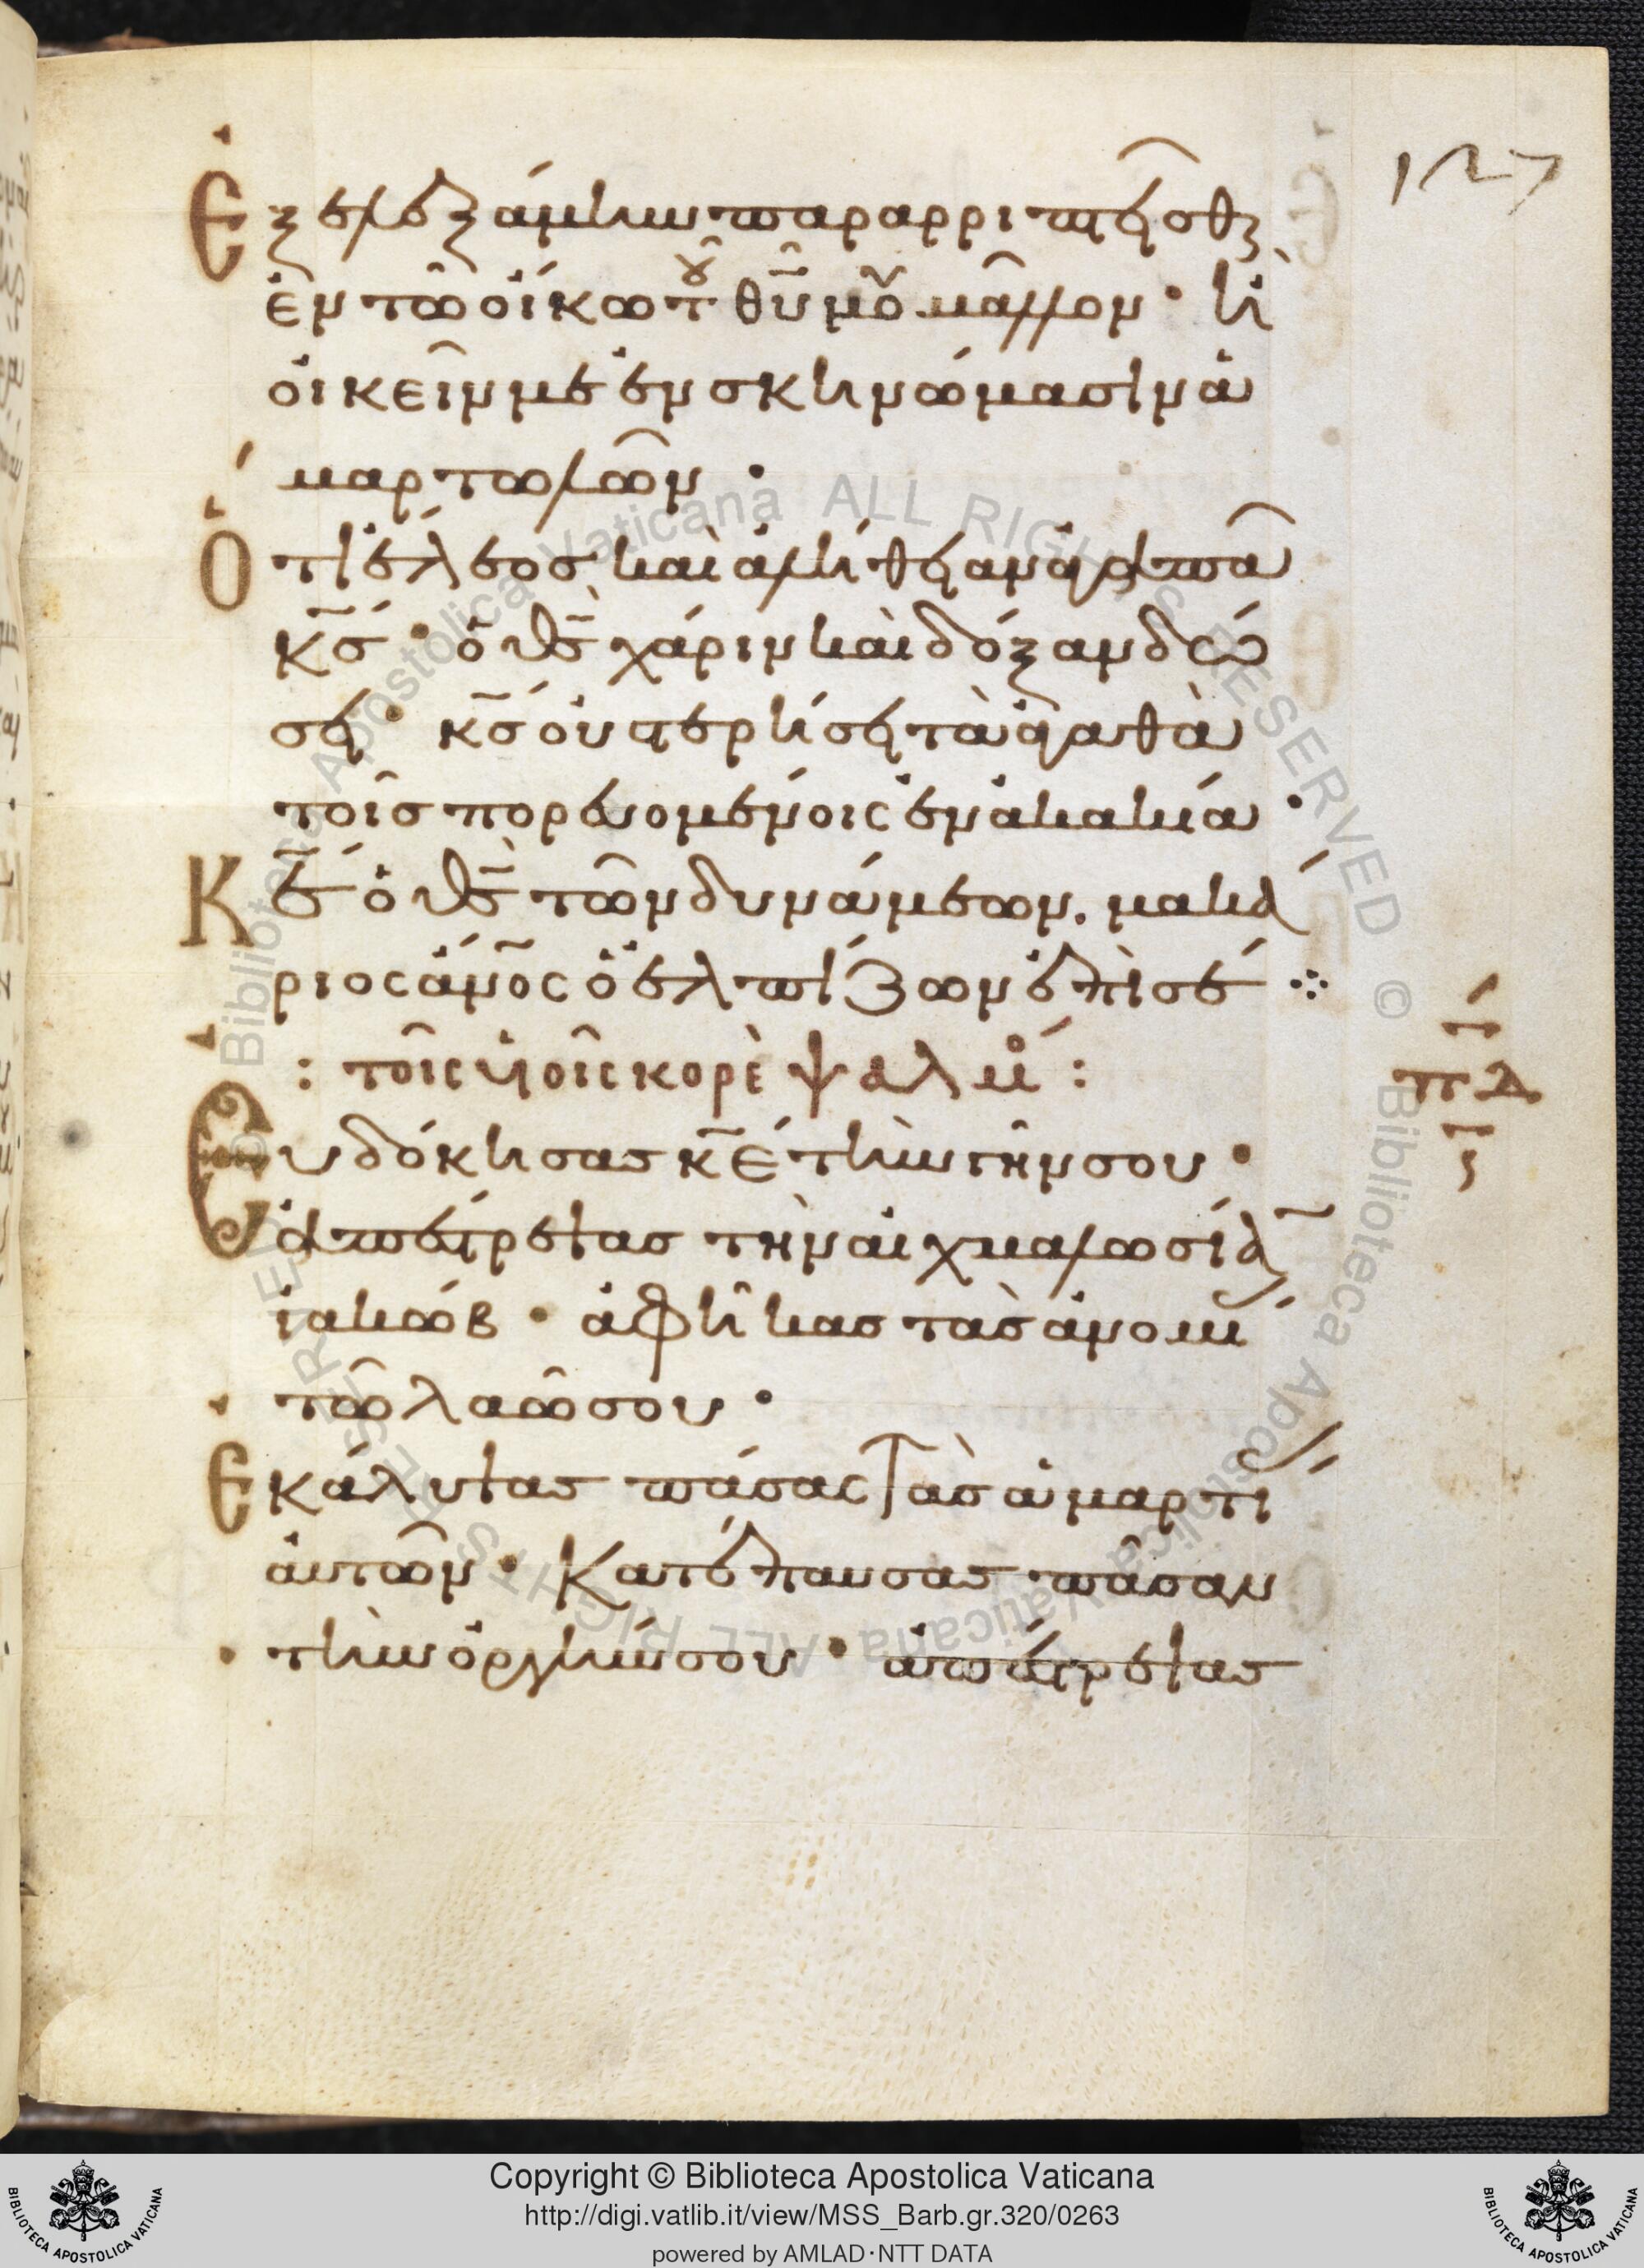 127
Ἐξελεξάμην παραρριπτεῖσθαι
ἐν τῶ οἴκω τοῦ θῦ μοῦ μᾶλλον · ἢ
οἰκεῖν με ἐν σκηνώμασιν ἁ
μαρτωλῶν ·
Ὅτι ἔλεος καὶ ἀλήθειαν ἀγαπᾶ
κς · ὁ θς χάριν καὶ δόξαν δώ
σει · κς οὐ στερήσει τὰ ἀγαθὰ
τοῖς πορευομένοις ἐν ἀκακία ·
Κε ὁ θς τῶν δυνάμεων . μακά
ριος ἄνος ὁ ἐλπίζων ἐπὶ σέ ·:·
: τοῖς υἱοῖς κορὲ ψαλμό :
πδ
Εὐδόκησας κε τὴν γῆν σου ·
ἀπέστρεψας τὴν αἰχμαλωσίαν
ἰακώβ · ἀφῆκας τὰς ἀνομίας
τῶ λαῶ σου ·
Ἐκάλυψας πάσας τὰς ἁμαρτίας
αὐτῶν · Κατέπαυσας πᾶσαν
τὴν ὀργήν σου · ἀπέστρεψας
Copyright © Biblioteca Apostolica Vaticana
http://digi.vatlib.it/view/MSS_Barb.gr.320/0263
powered by AMLAD·NTT DATA
BIBLIOTECA APOSTOLICA VATICANA
BIBLIOTECA APOSTOLICA VATICANA
© Biblioteca Apostolica Vaticana ALL RIGHTS RESERVED
© Biblioteca Apostolica Vaticana ALL RIGHTS RESERVED